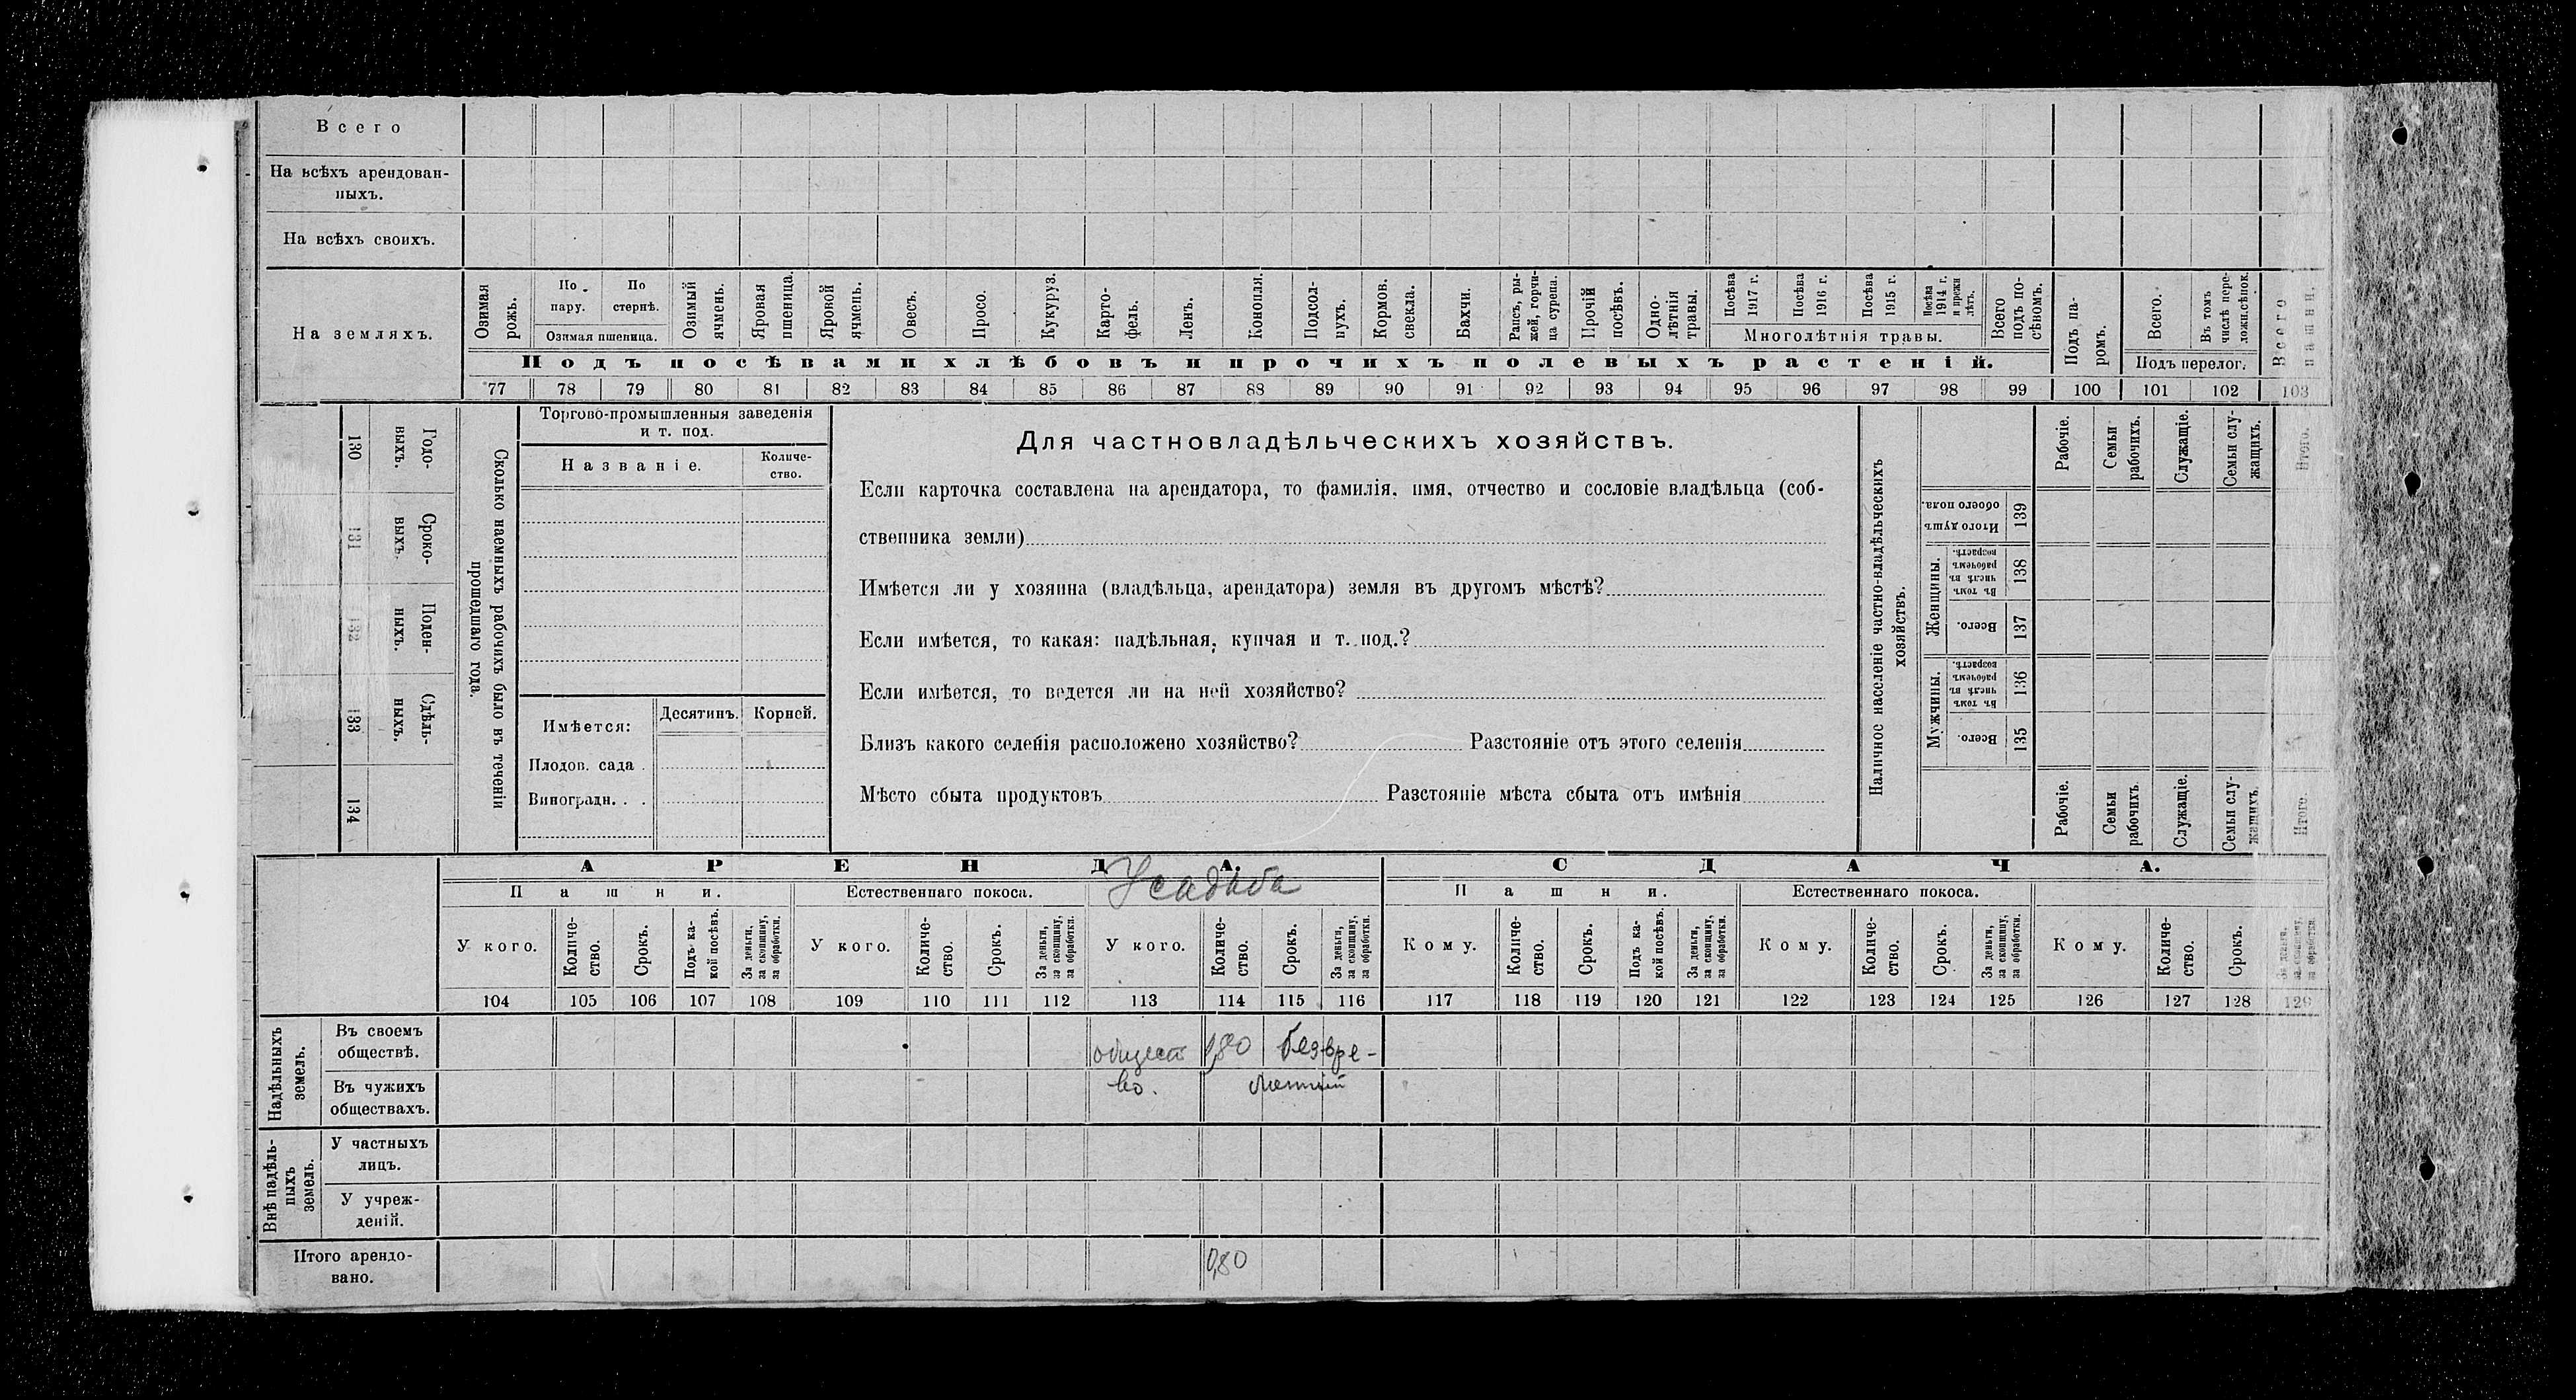 Всего
На всѣхъ арендован-
ныхъ.
На всѣхъ своихъ.
На земляхъ.
Озимая рожь.
По пару.
По стернѣ.
Озимая пшеница.
Озимый ячмень.
Яровая пшеница.
Яровой ячмень.
Овесъ.
Просо.
Кукуруз.
Карто-
фель.
Ленъ.
Конопля.
Подсол-
нухъ.
Кормов. свекла.
Бахчи.
Рапсъ, ры-
жей, горчи-
ца сурепа.
Прочій посѣвъ.
Одно-
лѣтнія травы.
Посѣва 1917 г.
Посѣва 1916 г.
Посѣва 1915 г.
Посѣва 1914 г. и прежн лѣтъ.
Многолѣтнія травы.
Всего подъ по-
сѣвомъ.
Подъ па-
ромъ.
Всего.
Въ томъ числѣ пере-
ложн.сѣнок.
Подъ перелог.
Всего пашни.
Подъ посѣвами хлѣбовъ и прочихъ полевыхъ растеній.
77 78 79 80 81 82 83 84 85 86 87 88 89 90 91 92 93 94 95 96 97 98 99 100 101 102 103
Годо-
выхъ.
130
Сроко-
выхъ.
131
Поден-
ныхъ.
132
Сдѣль-
ныхъ.
133
134
Сколько наемныхъ рабочихъ было въ теченіи
прошедшаго года.
Торгово-промышленныя заведенія
и т. под.
Названіе.
Количе-
ство.
Имѣется:
Десятинъ.
Корней.
Плодов. сада .
Виноградн. . .
Для частновладѣльческихъ хозяйствъ.
Если карточка составлена на арендатора, то фамилія, имя, отчество и сословіе владѣльца (соб-
ственника земли)
Имѣется ли у хозяина (владѣльца, арендатора) земля въ другомъ мѣстѣ?
Если имѣется, то какая: надѣльная, купчая и т. под.?
Если имѣется, то ведется ли на ней хозяйство?
Близъ какого селенія расположено хозяйство? Разстояніе отъ этого селенія
Мѣсто сбыта продуктовъ Разстояніе мѣста сбыта отъ имѣнія
Наличное населеніе частно-владѣльческихъ
хозяйствъ.
Рабочіе.
Семьи рабочихъ.
Служащіе.
Семьи слу-
жащихъ.
Итого.
Итого душъ обоего пола.
139
Женщины.
Въ томъ числѣ въ рабочемъ возрастѣ.
138
Всего.
137
Мужчины.
Въ томъ числѣ въ рабочемъ возрастѣ.
136
Всего.
135
Рабочіе.
Семьи рабочихъ.
Служащіе.
Семьи слу-
жащихъ.
Итого.
АРЕНДА.
СДАЧА.
Пашни.
Естественнаго покоса.
Усадьба
Пашни.
Естественнаго покоса.
У кого.
Количе-
ство.
Срокъ.
Подъ ка-
кой посѣвъ.
За деньги,
за скопщину,
за обработки.
У кого.
Количе-
ство.
Срокъ.
За деньги,
за скопщину,
за обработки.
У кого.
Количе-
ство.
Срокъ.
За деньги,
за скопщину,
за обработки.
Кому.
Количе-
ство.
Срокъ.
Подъ ка-
кой посѣвъ.
За деньги,
за скопщину,
за обработки.
Кому.
Количе-
ство.
Срокъ.
За деньги,
за скопщину,
за обработки.
Кому.
Количе-
ство.
Срокъ.
За деньги,
за скопщину,
за обработки.
104 105 106 107 108 109 110 111 112 113 114 115 116 117 118 119 120 121 122 123 124 125 126 127 128 129
Надѣльныхъ
земель.
Въ своемъ
обществѣ.
общест 0,80 безвре-
Въ чужихъ
обществахъ.
во. менный
Внѣ надѣль-
ныхъ
земель.
У частныхъ
лицъ.
У учреж-
деній.
Итого арендо-
вано.
0,80